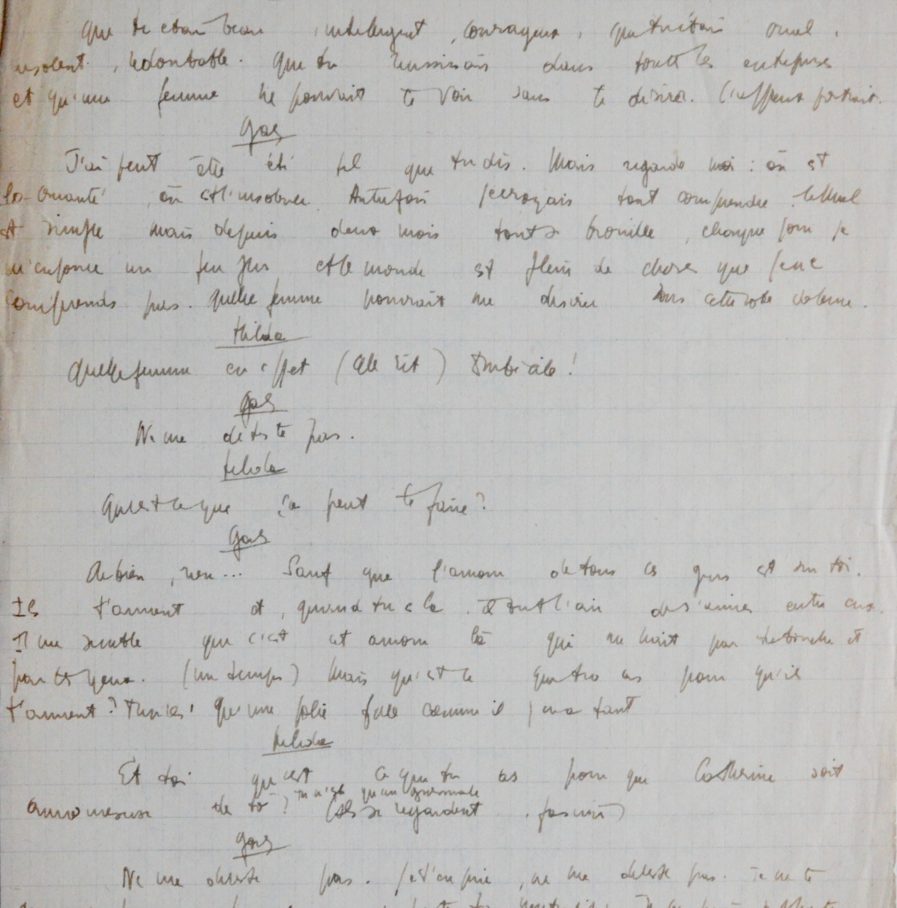 que tu étais beau, intelligent, courageux, que tu étais cruel,
insolent, redoutable. Que tu réussissais dans toutes les entreprises
et qu'une femme ne pouvait te voir sans te désirer. portrait.
Goetz
J'ai peut être été tel que tu dis. Mais regarde moi : où est
la cruauté, où est l'insolence. Autrefois je croyais tout comprendre, le Mal
est simple mais depuis deux mois tout se brouille, chaque jour je
m'enfonce un peu plus et le monde est plein de choses que je ne
comprends pas. Quelle femme pourrait me désirer dans cette robe de
Hilda
Quelle femme en effet (elle rit) Imbécile !
Goetz
Ne me déteste pas.
Hilda
Qu'est-ce que ça peut te faire ?
Goetz
Eh bien, rien... Sauf que l'amour de tous ces gens est sur toi.
Ils t'aiment et, quand tu es là, ils ont l'air de s'aimer entre eux.
Il me semble que c'est cet amour là qui me hait par ta bouche et
par tes yeux. (un temps) Mais qu'est-ce que tu as pour qu'ils
t'aiment ? Tu n'es qu'une jolie fille comme il y en a tant
Hilda
Et toi qu'est ce que tu as pour que Catherine soit
tu n'es qu'un
amoureuse de toi ? (Ils se regardent, fascinés)
Goetz
Ne me déteste pas. Je t'en prie, ne me déteste pas. Je ne te